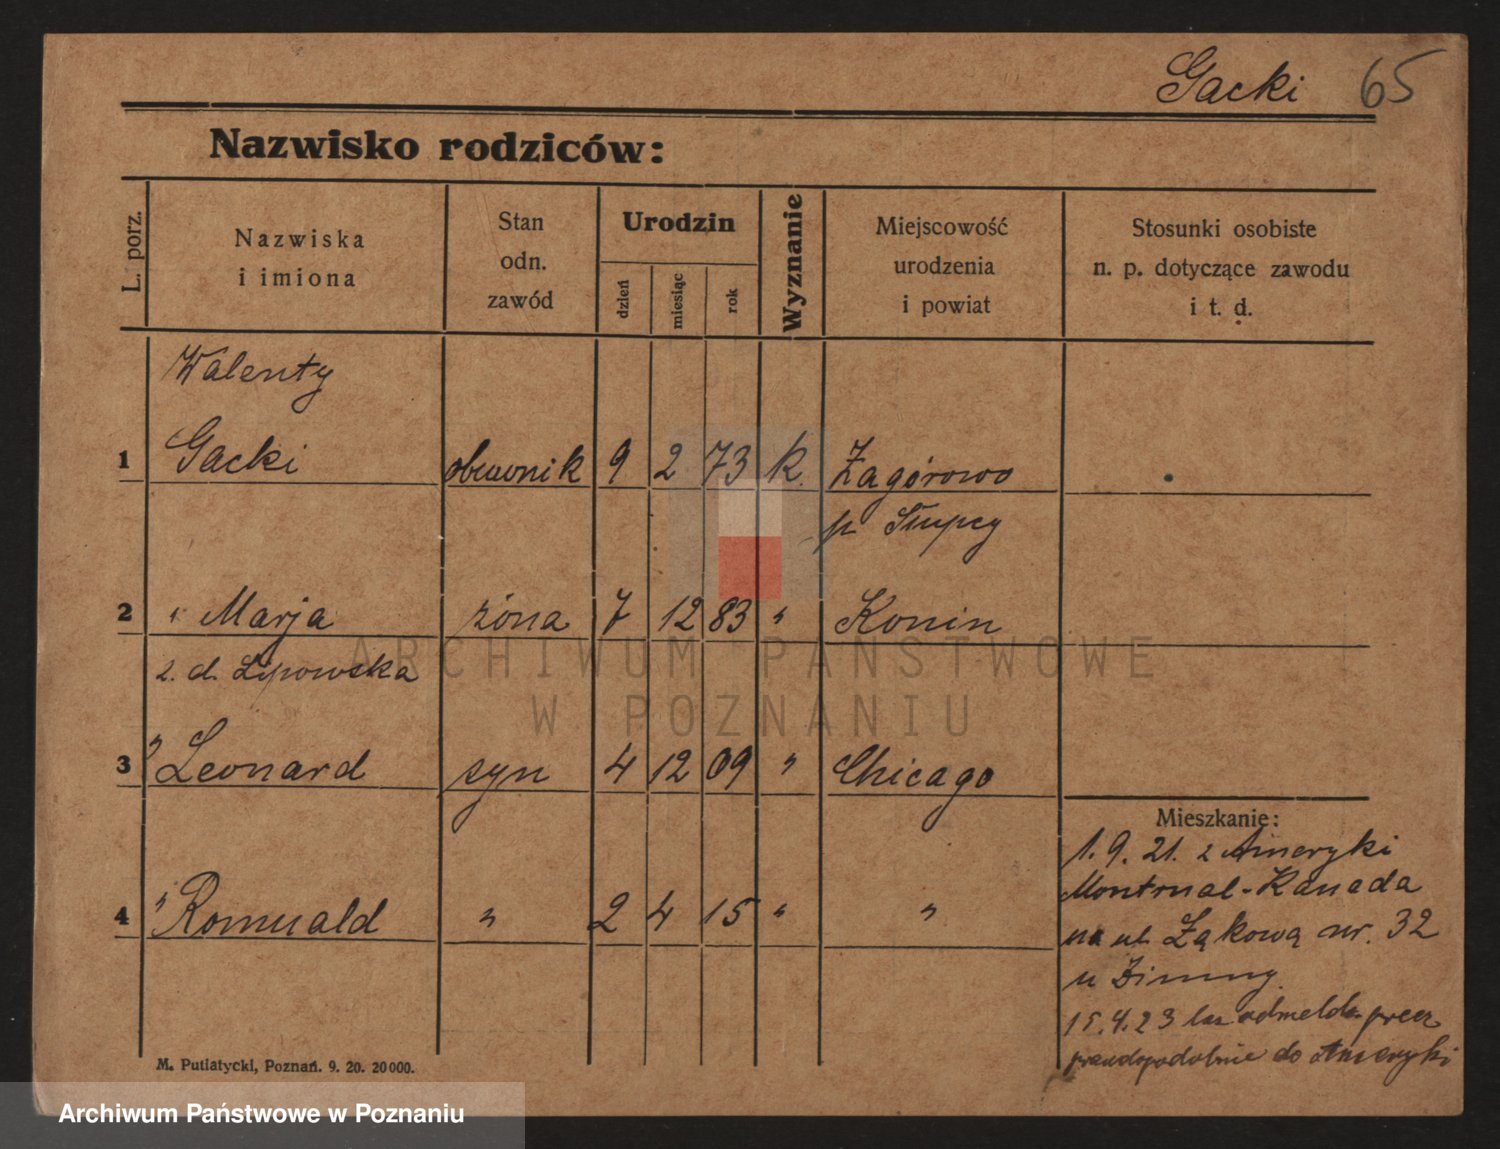 Gacki 65
Nazwisko rodziców:
L. porz.
Nazwiska
i imiona
Stan
odn.
zawód
Urodzin
dzień
miesiąc
rok
Wyznanie
Miejscowość
urodzenia
i powiat
Stosunki osobiste
n. p. dotyczące zawodu
i t. d.
Walenty
1 Gacki 9 2 73 k. Zagórowo
p Słupcy
2 " Marja żona 7 12 83 " Konin
z. d. Lipowska
3 " Leonard syn 4 12 09 " Chicago
4 " Romuald " 2 4 15 " "
Mieszkanie:
1. 9. 21. z Ameryki
Montrual-Kanada
na ul. Łąkową nr. 32
u Zimny.
15.4.23 bez odmeld. precz
prawdopodobnie do Ameryki
M. Putiatycki, Poznań. 9. 20. 20000.
ARCHIWUM PAŃSTWOWE
W POZNANIU
Archiwum Państwowe w Poznaniu